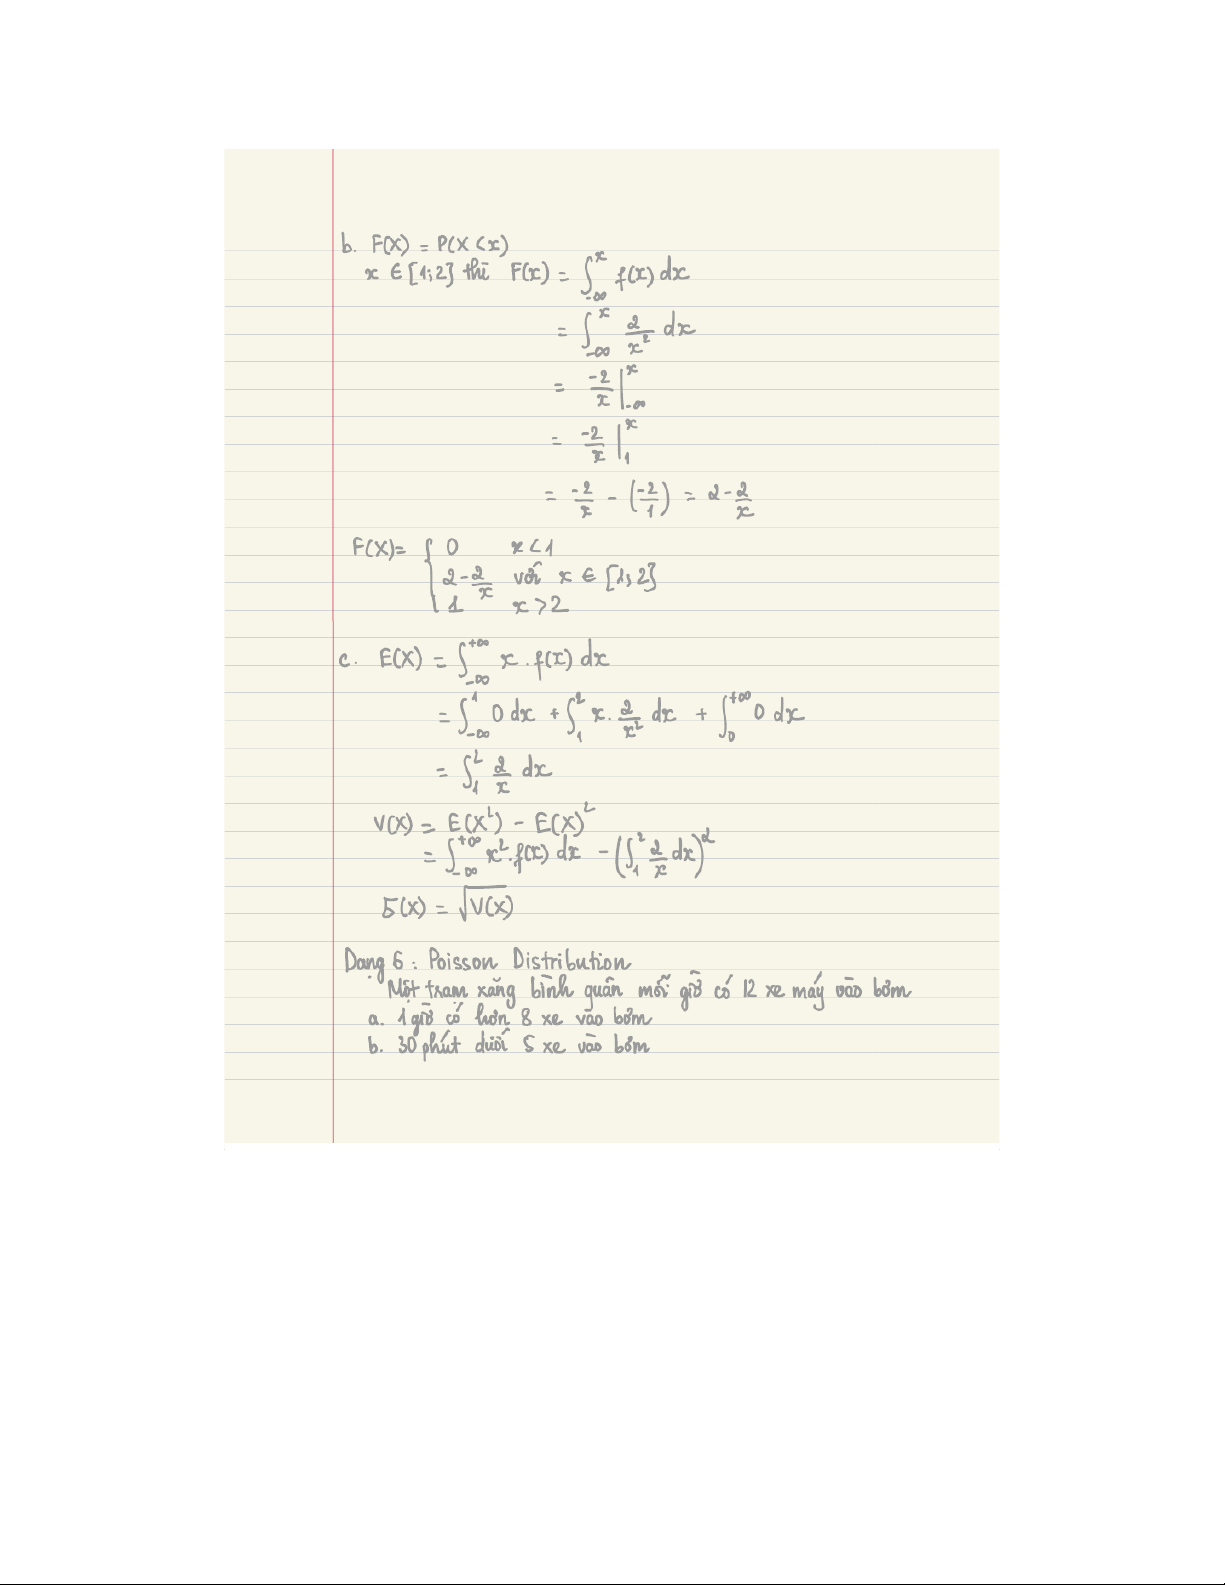 b. F(X) = P(X < x)
x ∈ [1;2] thì F(x) = ∫_{-∞}^{x} f(x) dx
= ∫_{-∞}^{x} 2/x² dx
= -2/x |_{-∞}^{x}
= -2/x |_{1}^{x}
= -2/x - (-2/1) = 2 - 2/x
F(X) = { 0 x < 1
2 - 2/x với x ∈ [1;2]
1 x > 2
c. E(X) = ∫_{-∞}^{+∞} x . f(x) dx
= ∫_{-∞}^{1} 0 dx + ∫_{1}^{2} x . 2/x² dx + ∫_{0}^{+∞} 0 dx
= ∫_{1}^{2} 2/x dx
V(X) = E(X²) - E(X)²
= ∫_{-∞}^{+∞} x² . f(x) dx - (∫_{1}^{2} 2/x dx)²
δ(X) = √V(X)
Dạng 6 : Poisson Distribution
Một trạm xăng bình quân mỗi giờ có 12 xe máy vào bơm
a. 1 giờ có hơn 8 xe vào bơm
b. 30 phút dưới 5 xe vào bơm